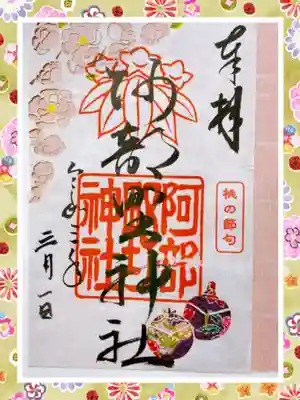 奉拝
桃の節句
阿部野神社
阿部野神社
三月一日